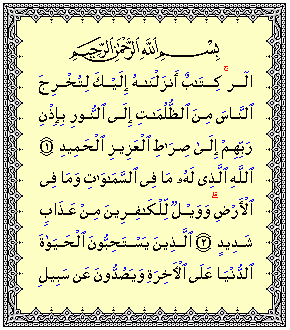 بِسْمِ ٱللَّهِ ٱلرَّحْمَٰنِ ٱلرَّحِيمِ
الٓر ۚ كِتَٰبٌ أَنزَلْنَٰهُ إِلَيْكَ لِتُخْرِجَ
ٱلنَّاسَ مِنَ ٱلظُّلُمَٰتِ إِلَى ٱلنُّورِ بِإِذْنِ
رَبِّهِمْ إِلَىٰ صِرَٰطِ ٱلْعَزِيزِ ٱلْحَمِيدِ ﴿١﴾
ٱللَّهِ ٱلَّذِى لَهُۥ مَا فِى ٱلسَّمَٰوَٰتِ وَمَا فِى
ٱلْأَرْضِ ۗ وَوَيْلٌ لِّلْكَٰفِرِينَ مِنْ عَذَابٍ
شَدِيدٍ ﴿٢﴾ ٱلَّذِينَ يَسْتَحِبُّونَ ٱلْحَيَوٰةَ
ٱلدُّنْيَا عَلَى ٱلْءَاخِرَةِ وَيَصُدُّونَ عَن سَبِيلِ